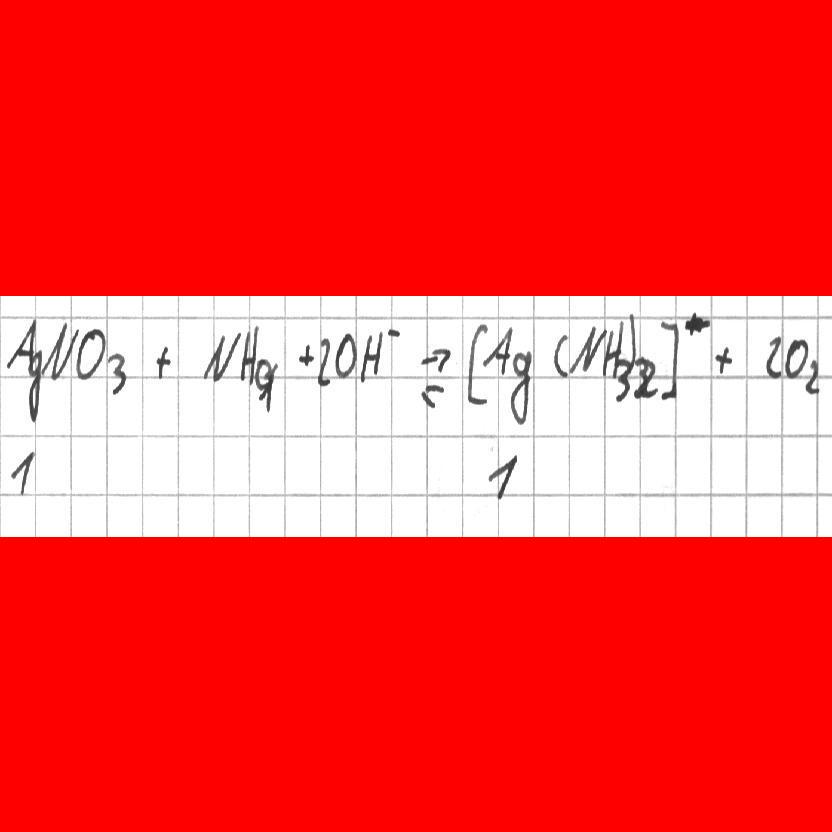 AgNO₃ + NH₄ + 2OH⁻ ⇄ [Ag(NH₃)₂]⁺ + 2O₂
1 1